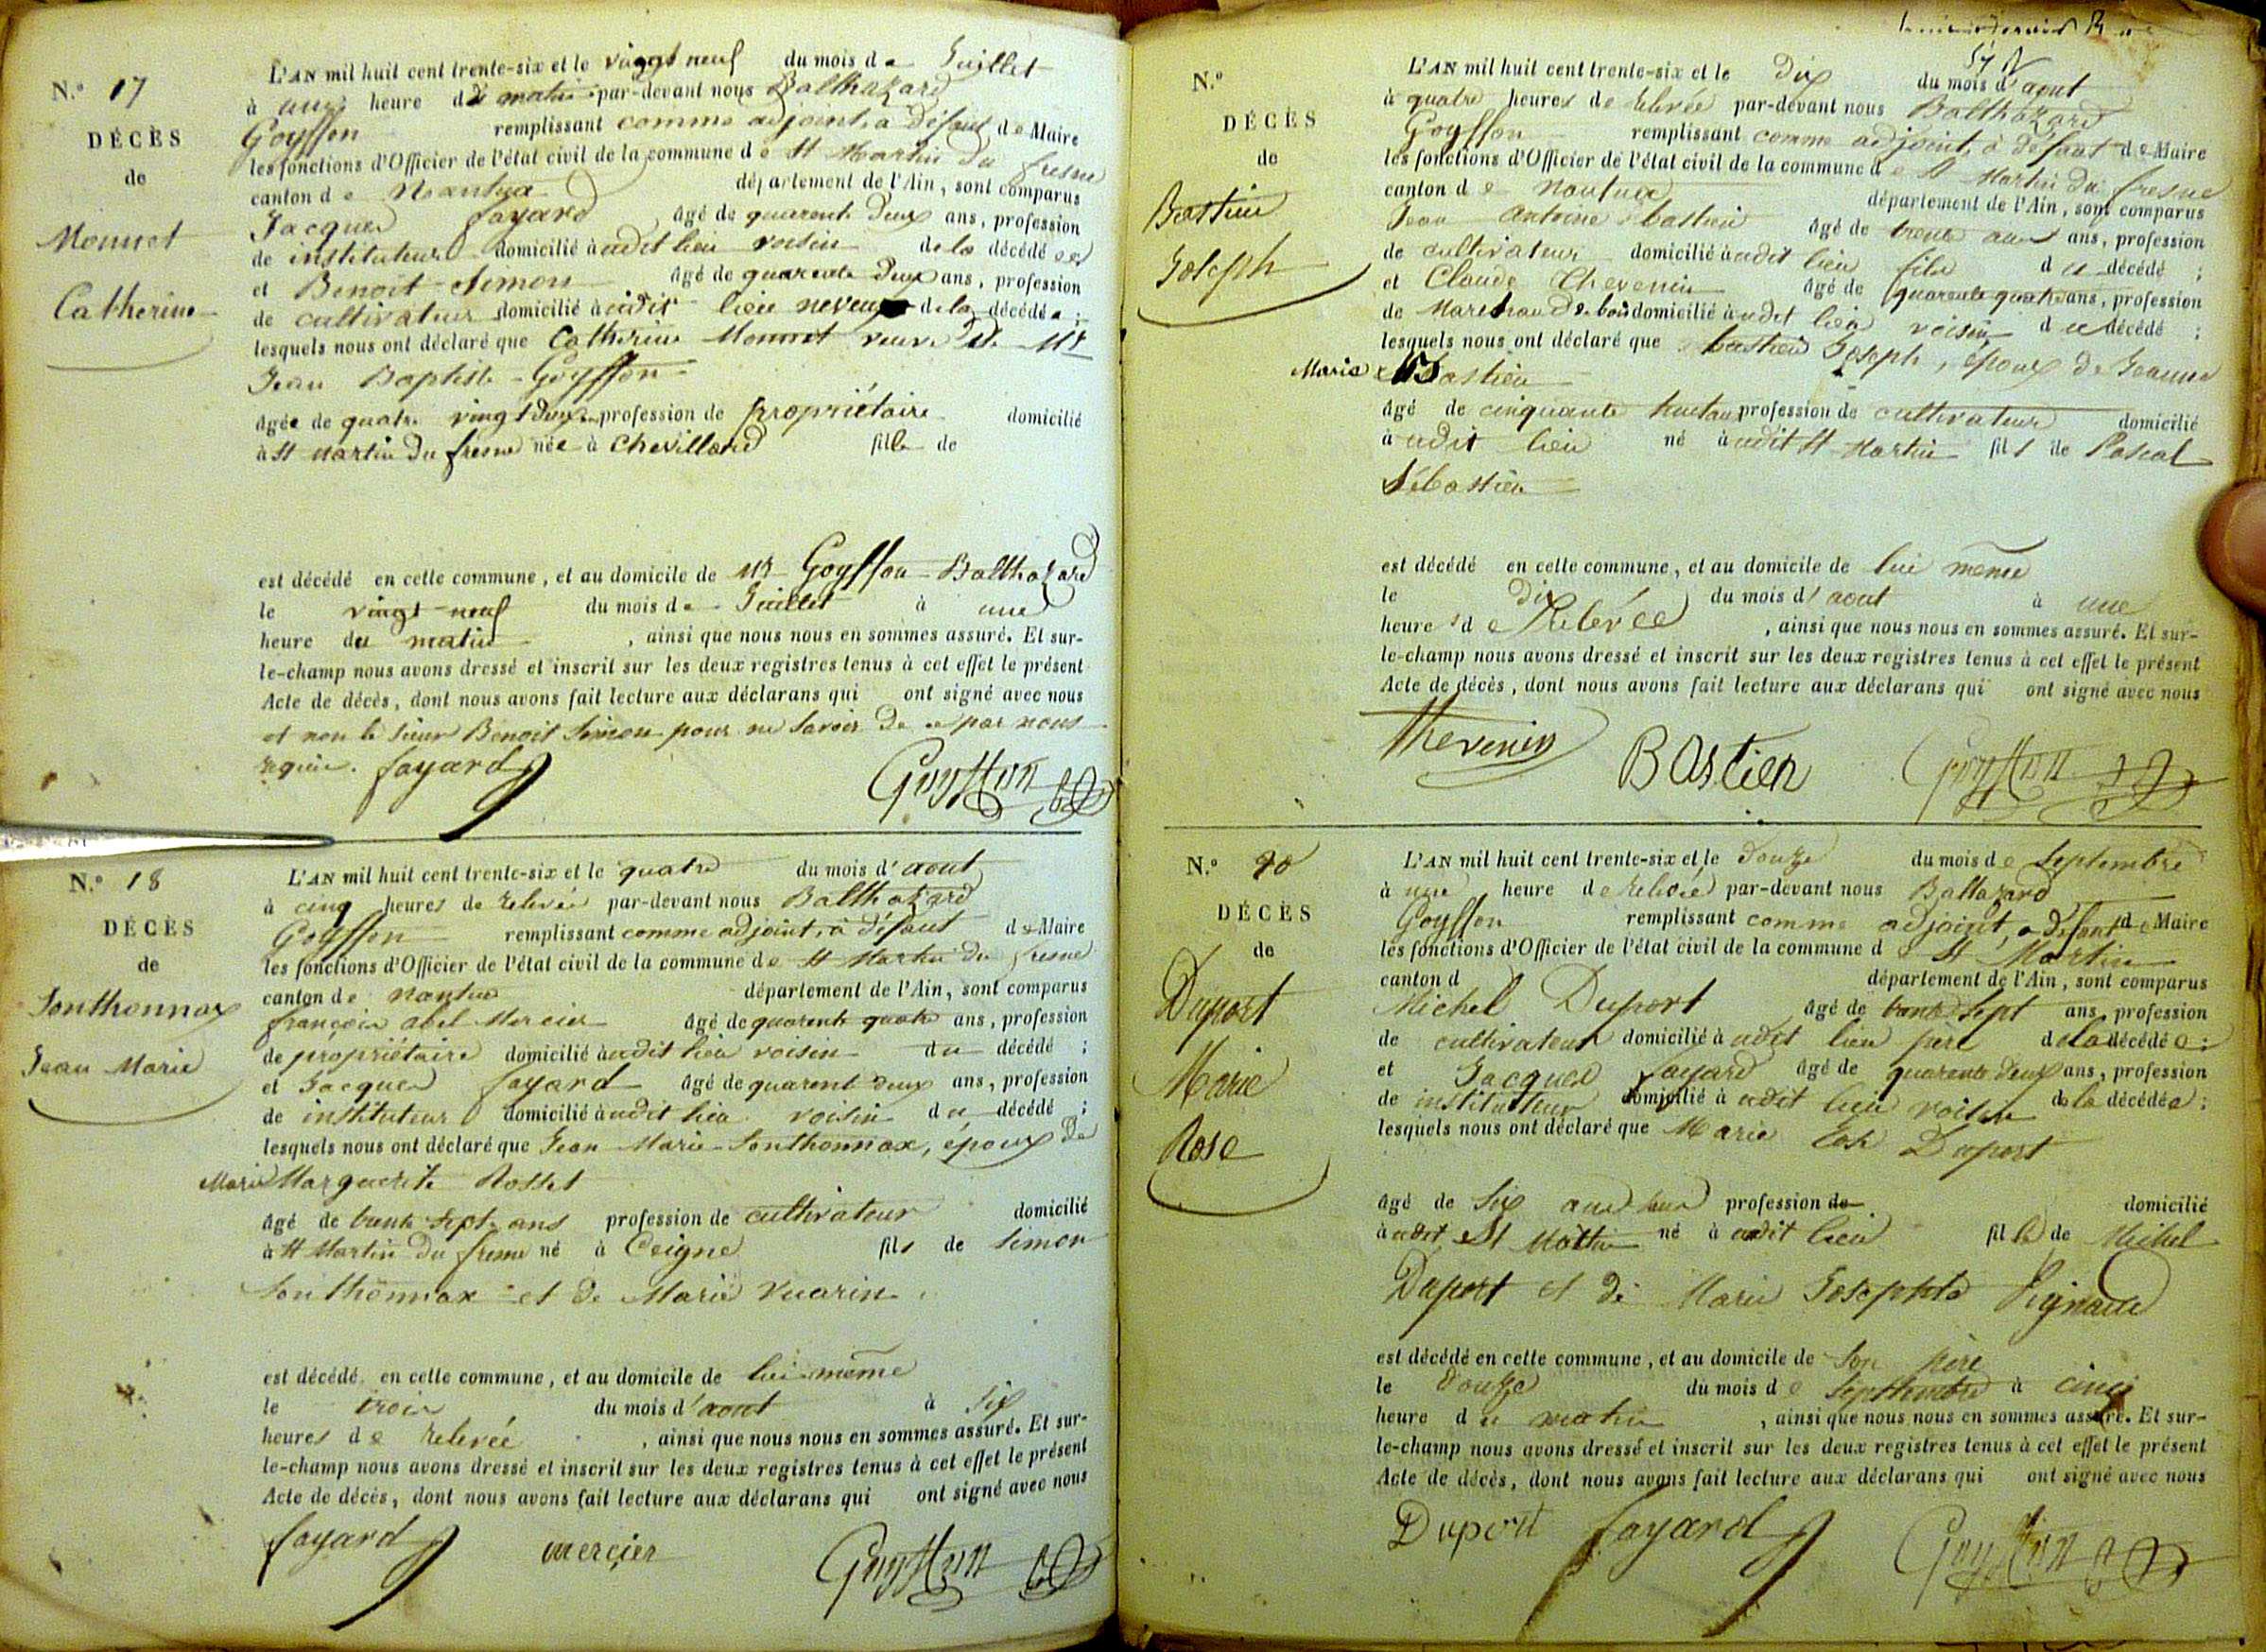 N.º 17
DÉCÈS
de
Monnet
Catherine
L'AN mil huit cent trente-six et le vingt neuf du mois de Juillet
à une heure du matin par-devant nous Balthazard
Goyffon remplissant comme adjoint, à défaut de Maire
les fonctions d'Officier de l'état civil de la commune de St Martin du fresne
canton de Nantua département de l'Ain, sont comparus
Jacques fayard âgé de quarente deux ans, profession
de instituteur domicilié à udit lieu voisin de la décédé
et Benoit Simon âgé de quarente deux ans, profession
de cultivateur domicilié à udit lieu neveu de la décédée ;
lesquels nous ont déclaré que Catherine Monnet veuve de Mr
Jean Baptiste Goyffon
âgée de quatre vingt deux profession de propriétaire domicilié
à St Martin du fresne née à Chevillard fille de
est décédé en cette commune, et au domicile de Mr Goyffon Balthazard
le vingt neuf du mois de Juillet à une
heure du matin , ainsi que nous nous en sommes assuré. Et sur-
le-champ nous avons dressé et inscrit sur les deux registres tenus à cet effet le présent
Acte de décès, dont nous avons fait lecture aux déclarans qui ont signé avec nous
et non le sieur Benoit Simon pour ne savoir de ce par nous
requis. fayard Goyffon
N.º 18
DÉCÈS
de
Sonthonnax
Jean Marie
L'AN mil huit cent trente-six et le quatre du mois d'aout
à cinq heures de relevée par-devant nous Balthazard
Goyffon remplissant comme adjoint, à défaut de Maire
les fonctions d'Officier de l'état civil de la commune de St Martin du fresne
canton de Nantua département de l'Ain, sont comparus
françois abel Mercier âgé de quarente quatre ans, profession
de propriétaire domicilié à udit lieu voisin du décédé ;
et Jacques fayard âgé de quarent deux ans, profession
de instituteur domicilié à udit lieu voisin du décédé ;
lesquels nous ont déclaré que Jean Marie Sonthonnax, époux de
Marie Marguerite Rosset
âgé de trente sept ans profession de cultivateur domicilié
à St Martin du fresne né à Ceigne fils de Simon
Sonthonnax et de Marie Vuarin
est décédé en cette commune, et au domicile de lui même
le trois du mois d'aout à six
heures de relevée , ainsi que nous nous en sommes assuré. Et sur-
le-champ nous avons dressé et inscrit sur les deux registres tenus à cet effet le présent
Acte de décès, dont nous avons fait lecture aux déclarans qui ont signé avec nous
fayard mercier Goyffon
N.º
DÉCÈS
de
Bastien
Joseph
L'AN mil huit cent trente-six et le dix du mois d'aout
à quatre heures de relevée par-devant nous Balthazard
Goyffon remplissant comme adjoint, à défaut de Maire
les fonctions d'Officier de l'état civil de la commune de St Martin du fresne
canton de Nantua département de l'Ain, sont comparus
Jean Antoine bastien âgé de trente ans, profession
de cultivateur domicilié à udit lieu fils du décédé ;
et Claude Thevenin âgé de quarente quatre ans, profession
de Marchand de bois domicilié à udit lieu voisin du décédé ;
lesquels nous ont déclaré que bastien Joseph, époux de Jeanne
Marie Bastien
âgé de cinquante huit ans profession de cultivateur domicilié
à udit lieu né à udit St Martin fils de Pascal
Sébastien
est décédé en cette commune, et au domicile de lui même
le dix du mois d'aout à une
heure de Relevée , ainsi que nous nous en sommes assuré. Et sur-
le-champ nous avons dressé et inscrit sur les deux registres tenus à cet effet le présent
Acte de décès, dont nous avons fait lecture aux déclarans qui ont signé avec nous
Thevenin BAstien Goyffon
N.º 20
DÉCÈS
de
Duport
Marie
Rose
L'AN mil huit cent trente-six et le douze du mois de Septembre
à une heure de relevée par-devant nous Baltazard
Goyffon remplissant comme adjoint, a défaut de Maire
les fonctions d'Officier de l'état civil de la commune de St Martin
canton d département de l'Ain, sont comparus
Michel Duport âgé de trente sept ans, profession
de cultivateur domicilié à udit lieu père de la décédée ;
et Jacques fayard âgé de quarente deux ans, profession
de instituteur domicilié à udit lieu voisin de la décédée ;
lesquels nous ont déclaré que Marie Duport
âgé de six profession de domicilié
à udit St Martin né à udit lieu fille de Michel
Duport et de Marie Josephte
est décédé en cette commune, et au domicile de Son père
le douze du mois de Septembre à cinq
heure du matin , ainsi que nous nous en sommes assuré. Et sur-
le-champ nous avons dressé et inscrit sur les deux registres tenus à cet effet le présent
Acte de décès, dont nous avons fait lecture aux déclarans qui ont signé avec nous
Duport fayard Goyffon